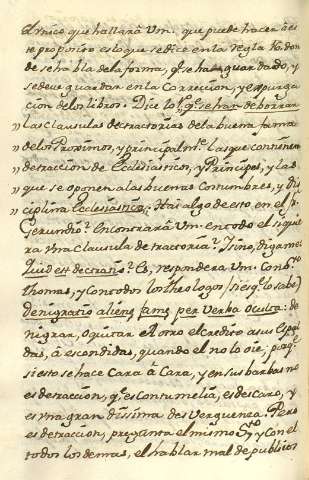 el unico que hallará Vm. que puede hacer á es
te proposito es lo que se dice en la regla 16. don
de se habla de la forma, q.e se ha de guardado, y
se deve guardar en la Correccion, y expurga
cion de los libros. Dice lo 1.o q.e se han de borrar
,, las clausulas detractorias de la buena fama
,, de los Proximos, y principalm.te las que contienen
,, detraccion de Ecclesiasticos, y Principes, y las
,, que se oponen a las buenas Costumbres, y Dis
,, ciplina Ecclesiastica: Hai algo de esto en el P.
Gerundio? Encontrará Vm. en todo el siquie
ra una clausula detractoria? Y sino, digame
Quid est detractio? Es, responderá Vm. con S.to
thomas, y con todos los theologos (si es q.e lo sabe)
Denigratio alienæ famæ per verba occulta: de
nigrar, o quitar al otro el credito a sus espal
das, á escondidas, quando el no lo oie; porq.e
si esto se hace Cara á Cara, y en sus barbas no
es detraccion, q.e es Contumelia, es descaro, y
es una grandissima desverguenza. Pero
es detraccion, pregunta el mismo S.to y con el
todos los demas, el hablar mal de publicos